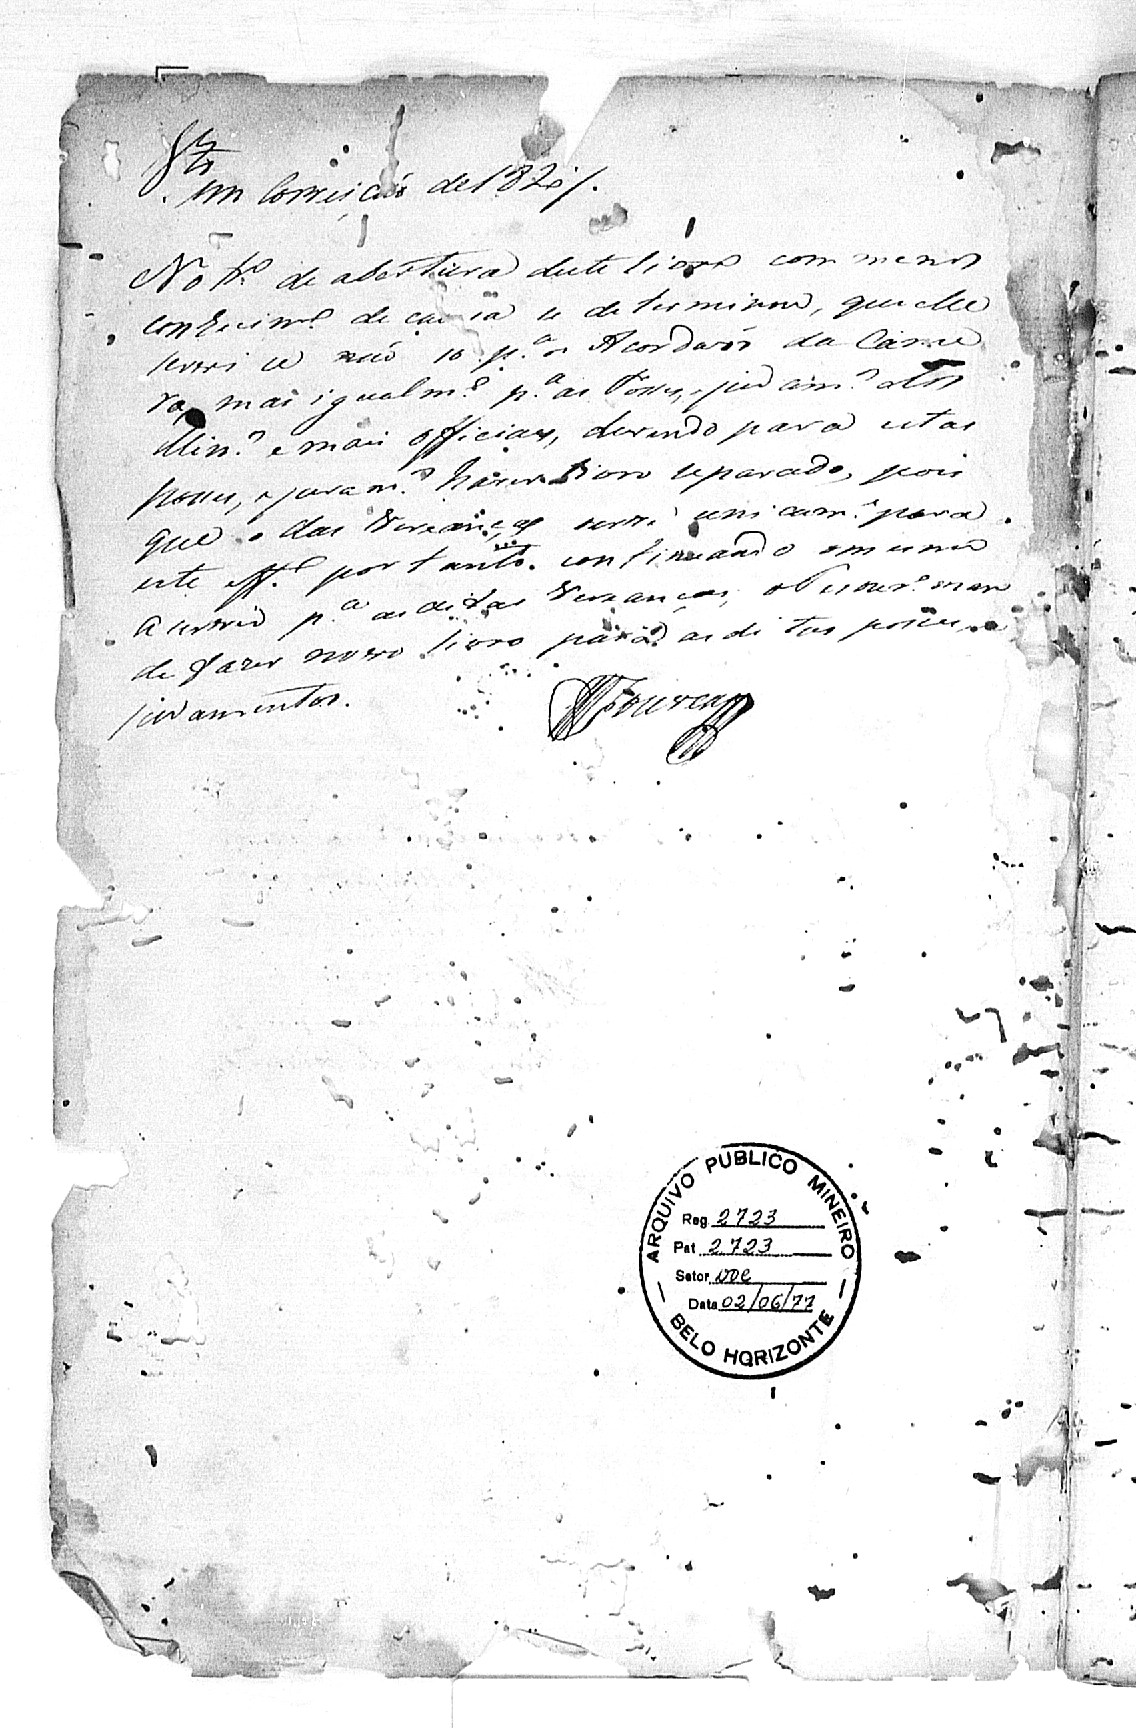 Vta
em Correição de 1820/.
No tr.º de abertura deste livro com menos
conhecim.º de cauza se determinou, que elle
servisse não só p.ª os Acordaõs da Came
ra, mas igualm.e p.ª as Posses, e juram.os dos
Min.os e mais officiaes, devendo para estas
posses, e juram.os haver livro separado, pois
que o das Vereanças serve unicam.e para
este eff.º portanto continuando o mesmo
a servir p.ª as ditas Vereanças, o Escr.m man
de fazer novo livro para as ditas posses, e
juramentos.
ARQUIVO PUBLICO MINEIRO
Reg 2723
Pat 2723
Setor DOC
Data 02/06/77
BELO HORIZONTE